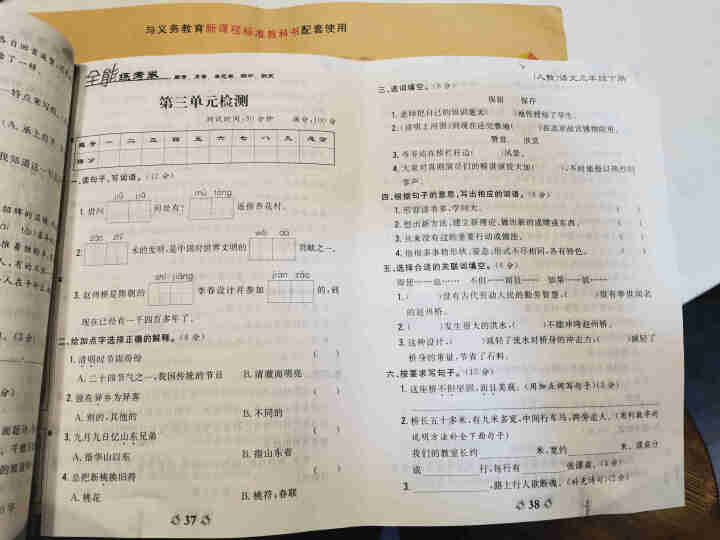 与义务教育新课程标准教科书配套使用
全能练考卷
第三单元检测
测试时间:90分钟 满分:100分
题号 一 二 三 四 五 六 七 八 九 总分
得分
一、读句子,写词语。(12分)
jiǔ jiā mù tóng
1.借问 何处有? 遥指杏花村。
zào zhǐ wěi dà
2. 术的发明,是中国对世界文明的 贡献之一。
shí jiàng jiàn zào
3.赵州桥是隋朝的 李春设计并参加 的,到
现在已经有一千四百多年了。
二、给加点字选择正确的解释。(8分)
1.清明时节雨纷纷 ( )
A.二十四节气之一,我国传统的节日 B.清澈而明亮
2.独在异乡为异客 ( )
A.别的,其他的 B.不同的
3.九月九日忆山东兄弟 ( )
A.指华山以东 B.指山东省
4.总把新桃换旧符 ( )
A.桃花 B.桃符,春联
37
(人教)语文三年级下册
三、选词填空。(8分)
保留 保存
1.老师把自己的知识毫无( )地传授给了学生。
2.《清明上河图》到现在还完整地( )在北京故宫博物院里。
赞赏 欣赏
3.爷爷站在桥栏杆边( )风景。
4.大家对喜剧演员们的精湛演技大加( ),不时地报以热烈的
掌声。
四、根据句子的意思,写出相应的词语。(8分)
1.形容读书多,学问大。 ( )
2.想出新方法,建立新理论,做出新的成绩或东西。 ( )
3.从来没有过的重要行动或做法。 ( )
4.指很多事物形状、姿态、形式不尽相同,各有特色。 ( )
五、选择合适的关联词填空。(6分)
即使……也…… 不但……而且…… 如果……就……
1.( )没有古代劳动人民的勤劳智慧,( )没有举世闻名
的赵州桥。
2.( )发生很大的洪水,( )不能冲垮赵州桥。
3.这种设计,( )减轻了流水对桥身的冲击力,( )减轻了
桥身的重量,节省了石料。
六、按要求写句子。(10分)
1.这座桥不但坚固,而且美观。(用加点词写句子)(3分)
2.桥长五十多米,有九米多宽,中间行车马,两旁走人。(用列数字的
说明方法补全下面句子)
我们的教室长约 米,宽约 米,课桌分
成 行,每行有 张课桌。(4分)
3. ,路上行人欲断魂。(补充诗句)(3分)
38